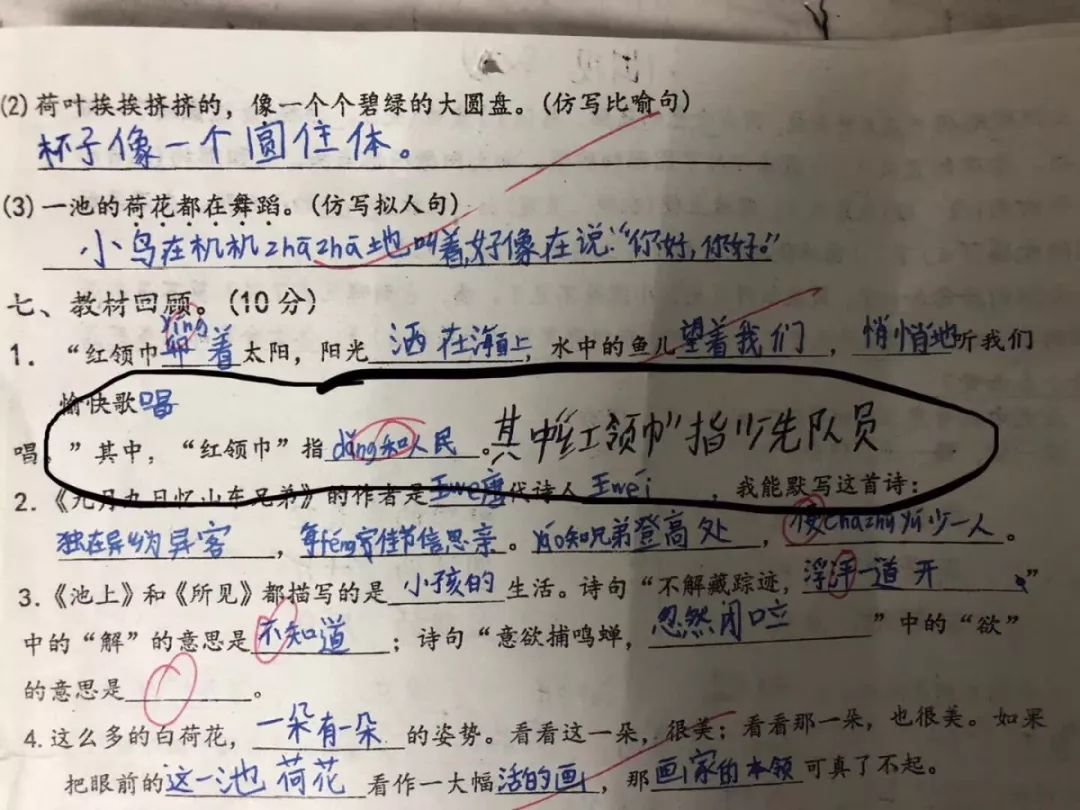 (2) 荷叶挨挨挤挤的，像一个个碧绿的大圆盘。(仿写比喻句)
杯子像一个圆住体。
(3) 一池的荷花都在舞蹈。(仿写拟人句)
小鸟在机机zhāzhā地叫着,好像在说:“你好,你好。”
七、教材回顾。(10分)
yíng
1. “红领巾 着太阳，阳光洒在海面上，水中的鱼儿望着我们，悄悄地听我们
愉快歌唱
唱。”其中，“红领巾”指dǎng和人民。其中“红领巾”指少先队员
2.《九月九日忆山东兄弟》的作者是王wei唐代诗人王wei，我能默写这首诗：
独在异乡为异客，每féng佳节倍思亲。yáo知兄弟登高处，便chāzhūyú少一人。
3.《池上》和《所见》都描写的是小孩的生活。诗句“不解藏踪迹，浮萍一道开”
中的“解”的意思是不知道；诗句“意欲捕鸣蝉，忽然闭口立”中的“欲”
的意思是。
4. 这么多的白荷花，一朵有一朵的姿势。看看这一朵，很美；看看那一朵，也很美。如果
把眼前的这一池荷花看作一大幅活的画，那画家的本领可真了不起。